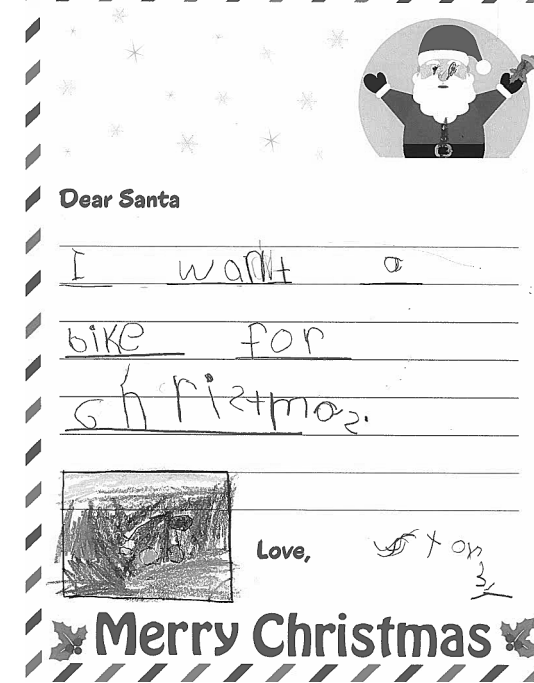 Dear Santa
I want a
bike for
christmas.
Love,
Merry Christmas